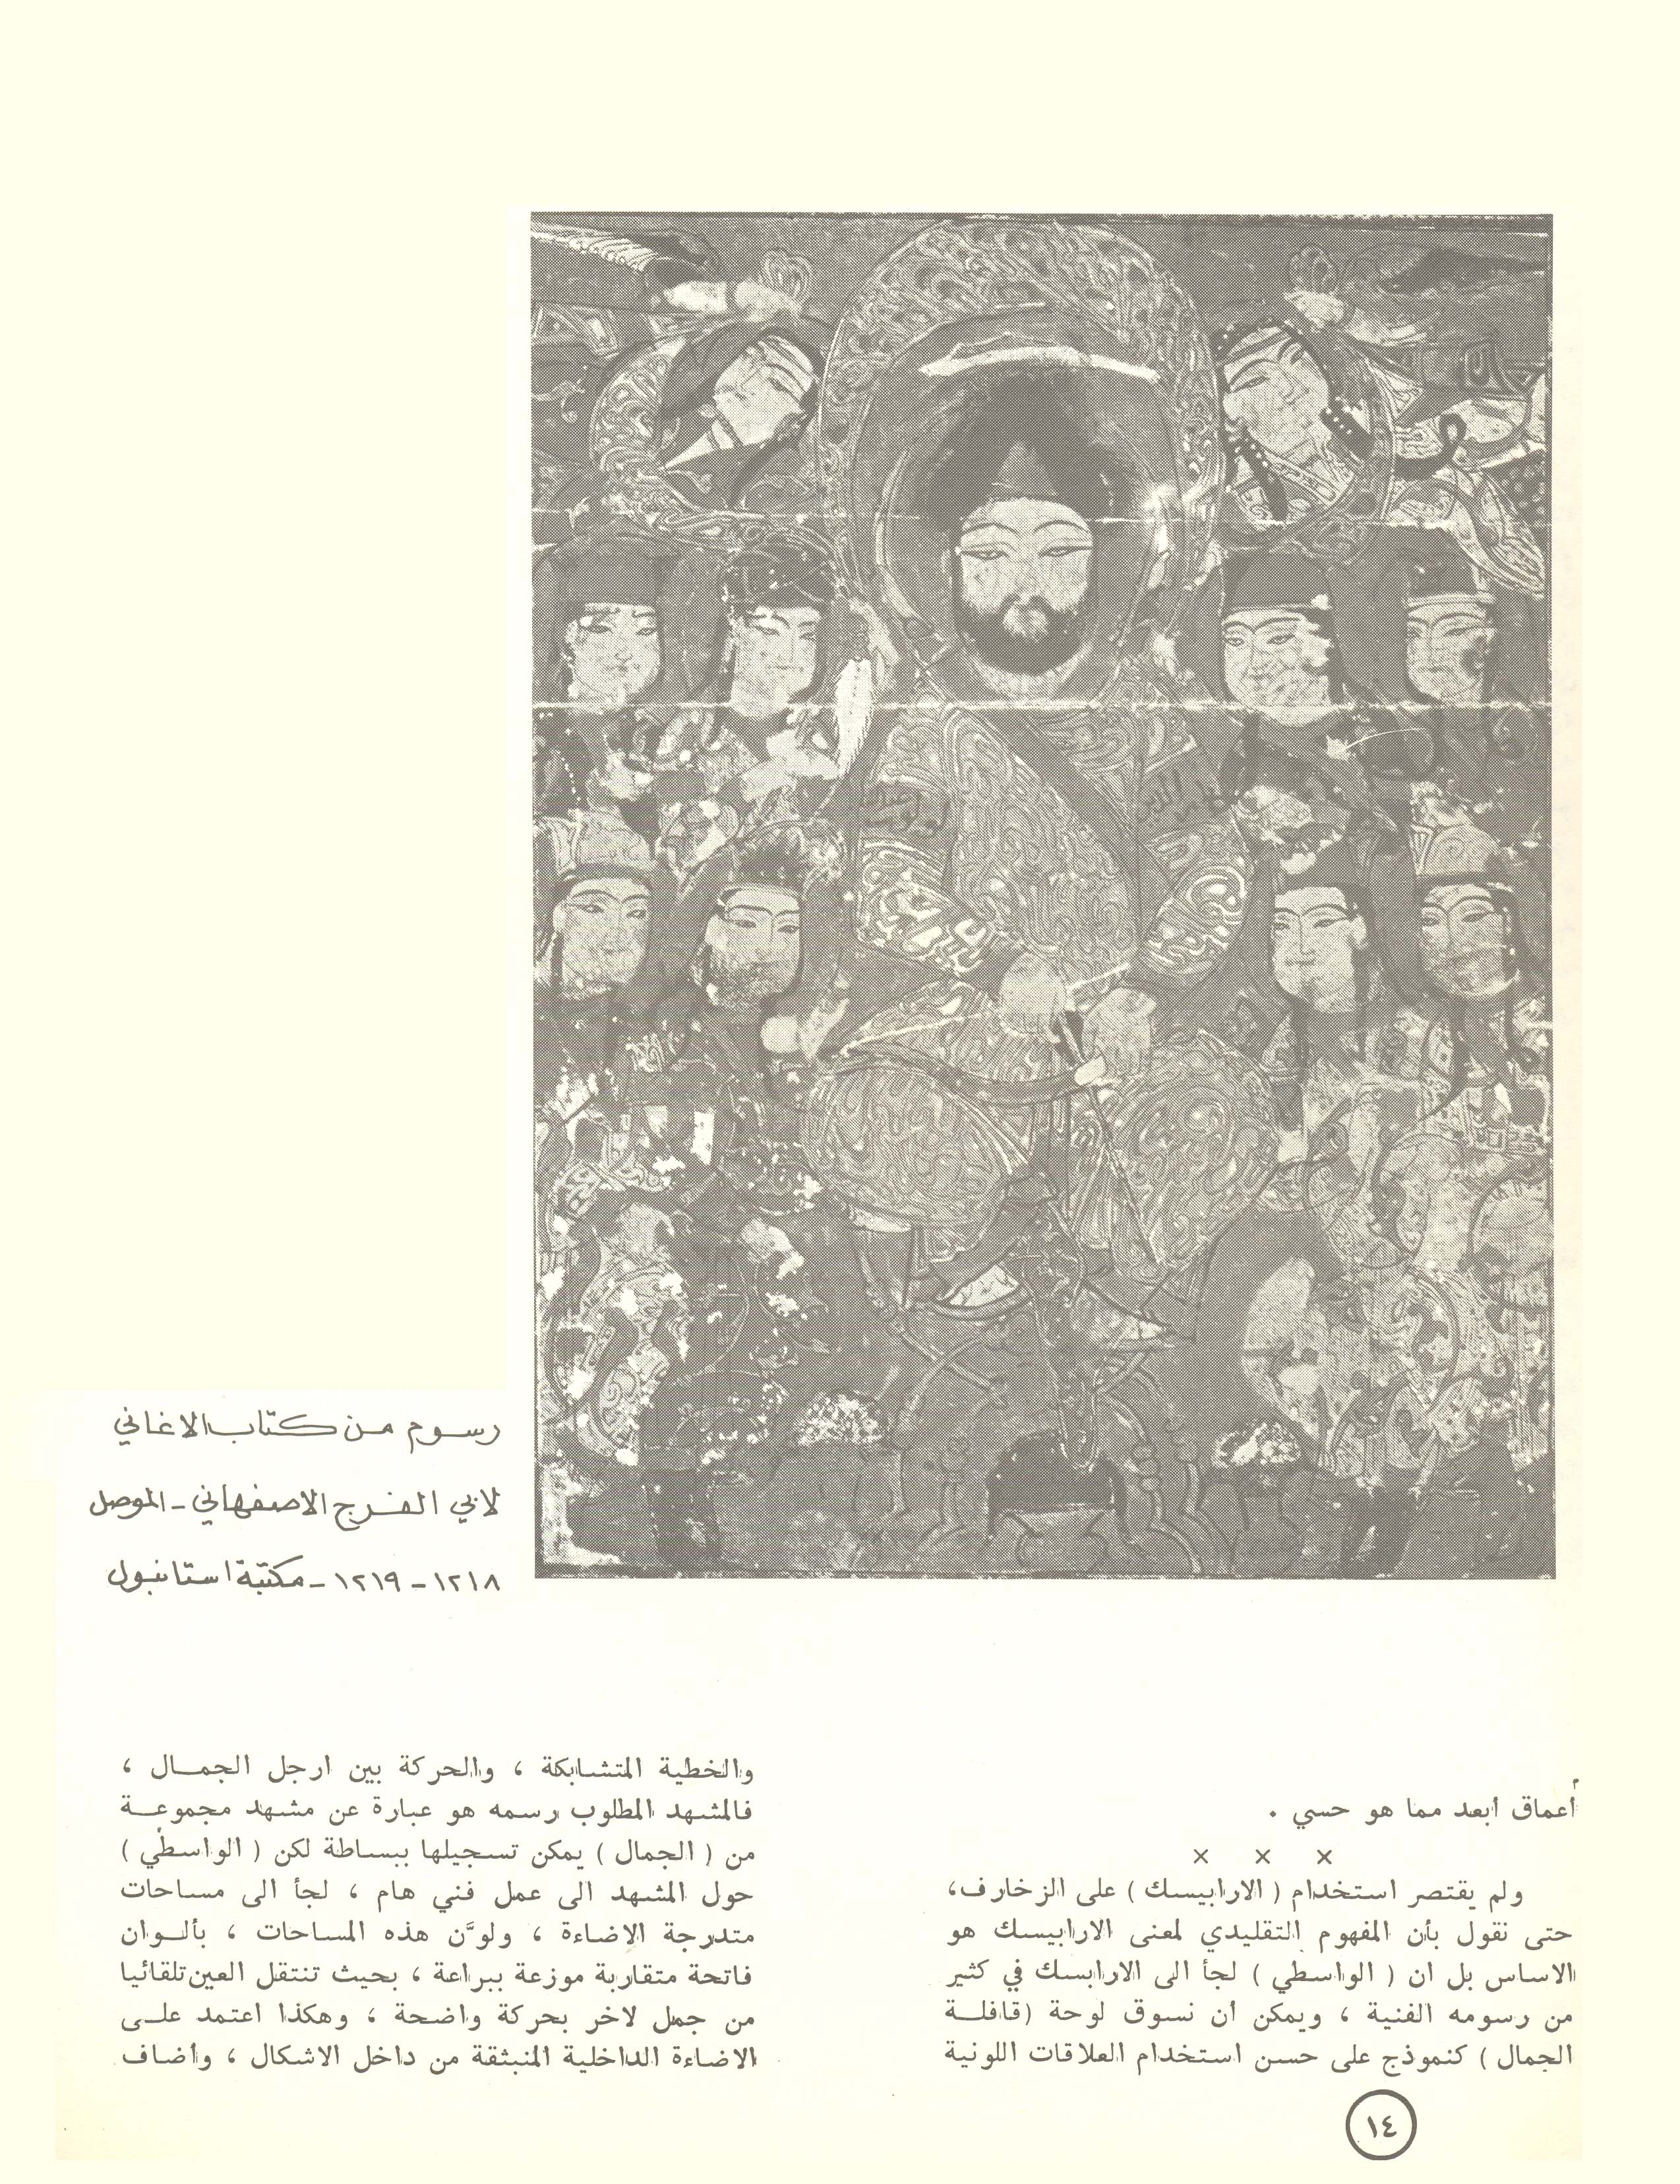 رسوم من كتاب الاغاني
لابي الفرج الاصفهاني - الموصل
١٢١٨ - ١٢١٩ - مكتبة استانبول
أعماق ابعد مما هو حسي .
× × ×
ولم يقتصر استخدام ( الارابيسك ) على الزخارف،
حتى نقول بأن المفهوم التقليدي لمعنى الارابيسك هو
الاساس بل ان ( الواسطي ) لجأ الى الارابسك في كثير
من رسومه الفنية ، ويمكن أن نسوق لوحة (قافلــة
الجمال ) كنموذج على حسن استخدام العلاقات اللونية
والخطية المتشابكة ، والحركة بين ارجل الجمــال ،
فالمشهد المطلوب رسمه هو عبارة عن مشهد مجموعــة
من ( الجمال ) يمكن تسجيلها ببساطة لكن ( الواسطي )
حول المشهد الى عمل فني هام ، لجأ الى مساحات
متدرجة الاضاءة ، ولوَّن هذه المساحات ، بألــوان
فاتحة متقاربة موزعة ببراعة ، بحيث تنتقل العين تلقائيا
من جمل لاخر بحركة واضحة ، وهكذا اعتمد علــى
الاضاءة الداخلية المنبثقة من داخل الاشكال ، وأضاف
١٤